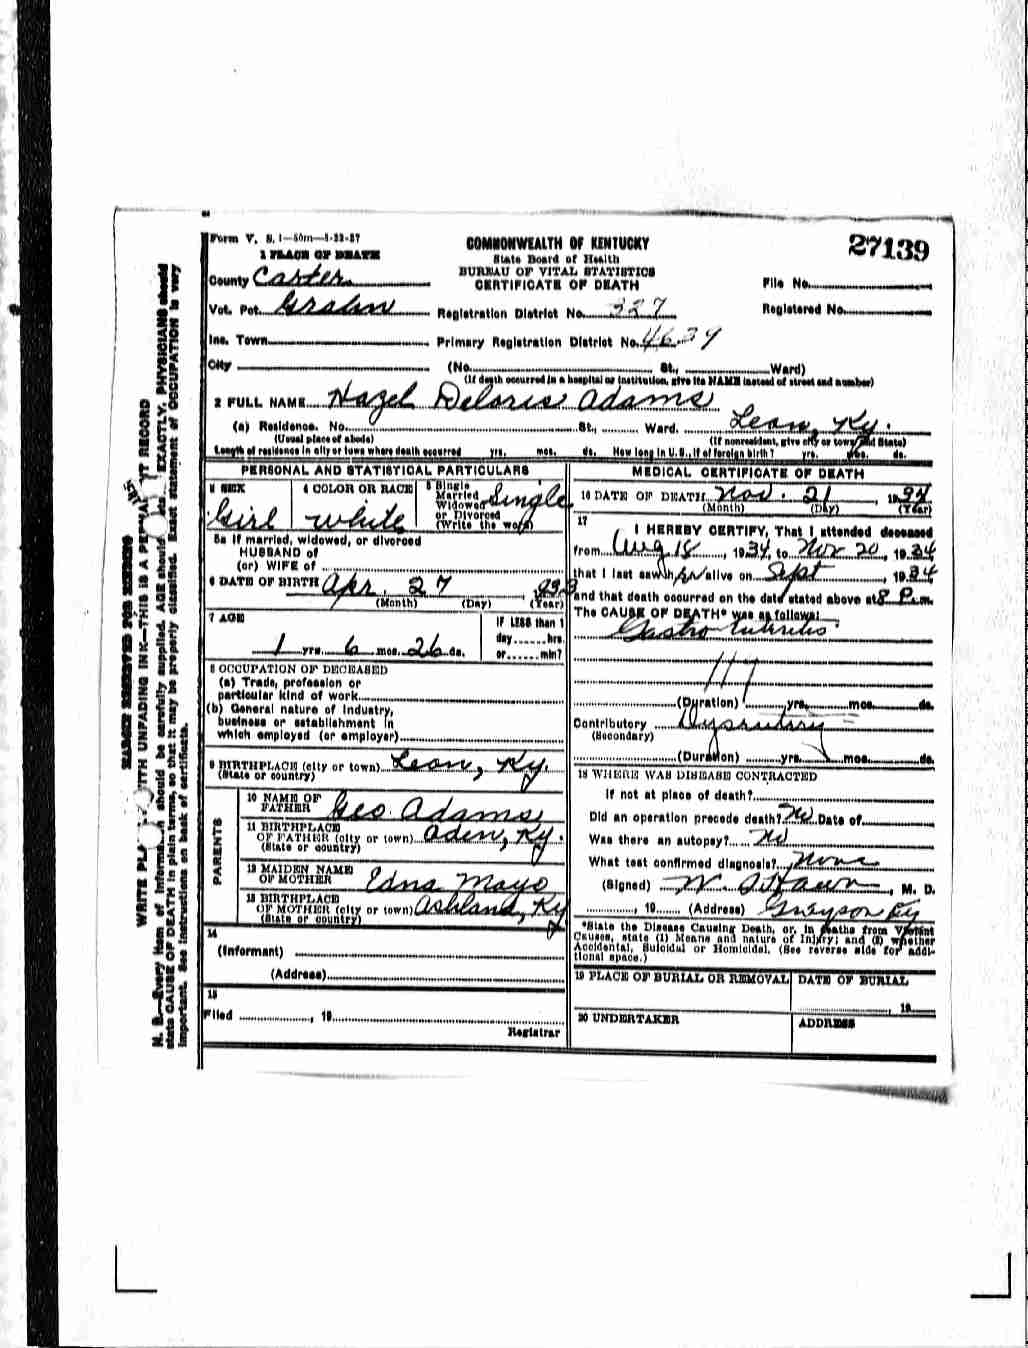 Form V. S. 1—50m—5-23-27
1 PLACE OF DEATH
COMMONWEALTH OF KENTUCKY
State Board of Health
BUREAU OF VITAL STATISTICS
CERTIFICATE OF DEATH
27139
County Carter
File No.
Vot. Pct. Grahn
Registration District No. 327
Registered No.
Inc. Town
Primary Registration District No. 4639
City
(No. St., Ward)
(If death occurred in a hospital or institution, give its NAME instead of street and number)
2 FULL NAME Hazel Deloris Adams
(a) Residence. No. St., Ward. Leon, Ky.
(Usual place of abode)
(If nonresident, give city or town and State)
Length of residence in city or town where death occurred yrs. mos. ds. How long in U.S., if of foreign birth? yrs. mos. ds.
PERSONAL AND STATISTICAL PARTICULARS
3 SEX
Girl
4 COLOR OR RACE
white
5 Single
Married
Widowed
or Divorced
(Write the word)
Single
5a If married, widowed, or divorced
HUSBAND of
(or) WIFE of
6 DATE OF BIRTH Apr. 27, 1933
(Month) (Day) (Year)
7 AGE
1 yrs. 6 mos. 26 ds.
IF LESS than 1
day...... hrs.
or...... min?
8 OCCUPATION OF DECEASED
(a) Trade, profession or
particular kind of work
(b) General nature of Industry,
business or establishment in
which employed (or employer)
9 BIRTHPLACE (city or town) Leon, Ky.
(State or country)
PARENTS
10 NAME OF
FATHER Geo. Adams
11 BIRTHPLACE
OF FATHER (city or town) Aden, Ky.
(State or country)
12 MAIDEN NAME
OF MOTHER Edna Mayo
13 BIRTHPLACE
OF MOTHER (city or town) Ashland, Ky
(State or country)
14
(Informant)
(Address)
15
Filed , 19
Registrar
MEDICAL CERTIFICATE OF DEATH
16 DATE OF DEATH Nov. 21, 1934
(Month) (Day) (Year)
17
I HEREBY CERTIFY, That I attended deceased
from Aug 18, 1934, to Nov 20, 1934
that I last saw her alive on Sept, 1934
and that death occurred on the date stated above at 8 P.m.
The CAUSE OF DEATH* was as follows:
Gastro Enteritis
119
(Duration) yrs. mos. ds.
Contributory Dysentery
(Secondary)
(Duration) yrs. mos. ds.
18 WHERE WAS DISEASE CONTRACTED
If not at place of death?
Did an operation precede death? No Date of
Was there an autopsy? No
What test confirmed diagnosis? None
(Signed) W. , M. D.
, 19 (Address) Grayson Ky
*State the Disease Causing Death, or, in deaths from Violent
Causes, state (1) Means and nature of Injury; and (2) whether
Accidental, Suicidal or Homicidal. (See reverse side for addi-
tional space.)
19 PLACE OF BURIAL OR REMOVAL
DATE OF BURIAL
, 19
20 UNDERTAKER
ADDRESS
MARGIN RESERVED FOR BINDING
WITH UNFADING INK—THIS IS A RECORD
N. B.—Every item of information should be carefully supplied. AGE should EXACTLY. PHYSICIANS should
state CAUSE OF DEATH in plain terms, so that it may be properly classified. Exact statement of OCCUPATION is very
important. See instructions on back of certificate.